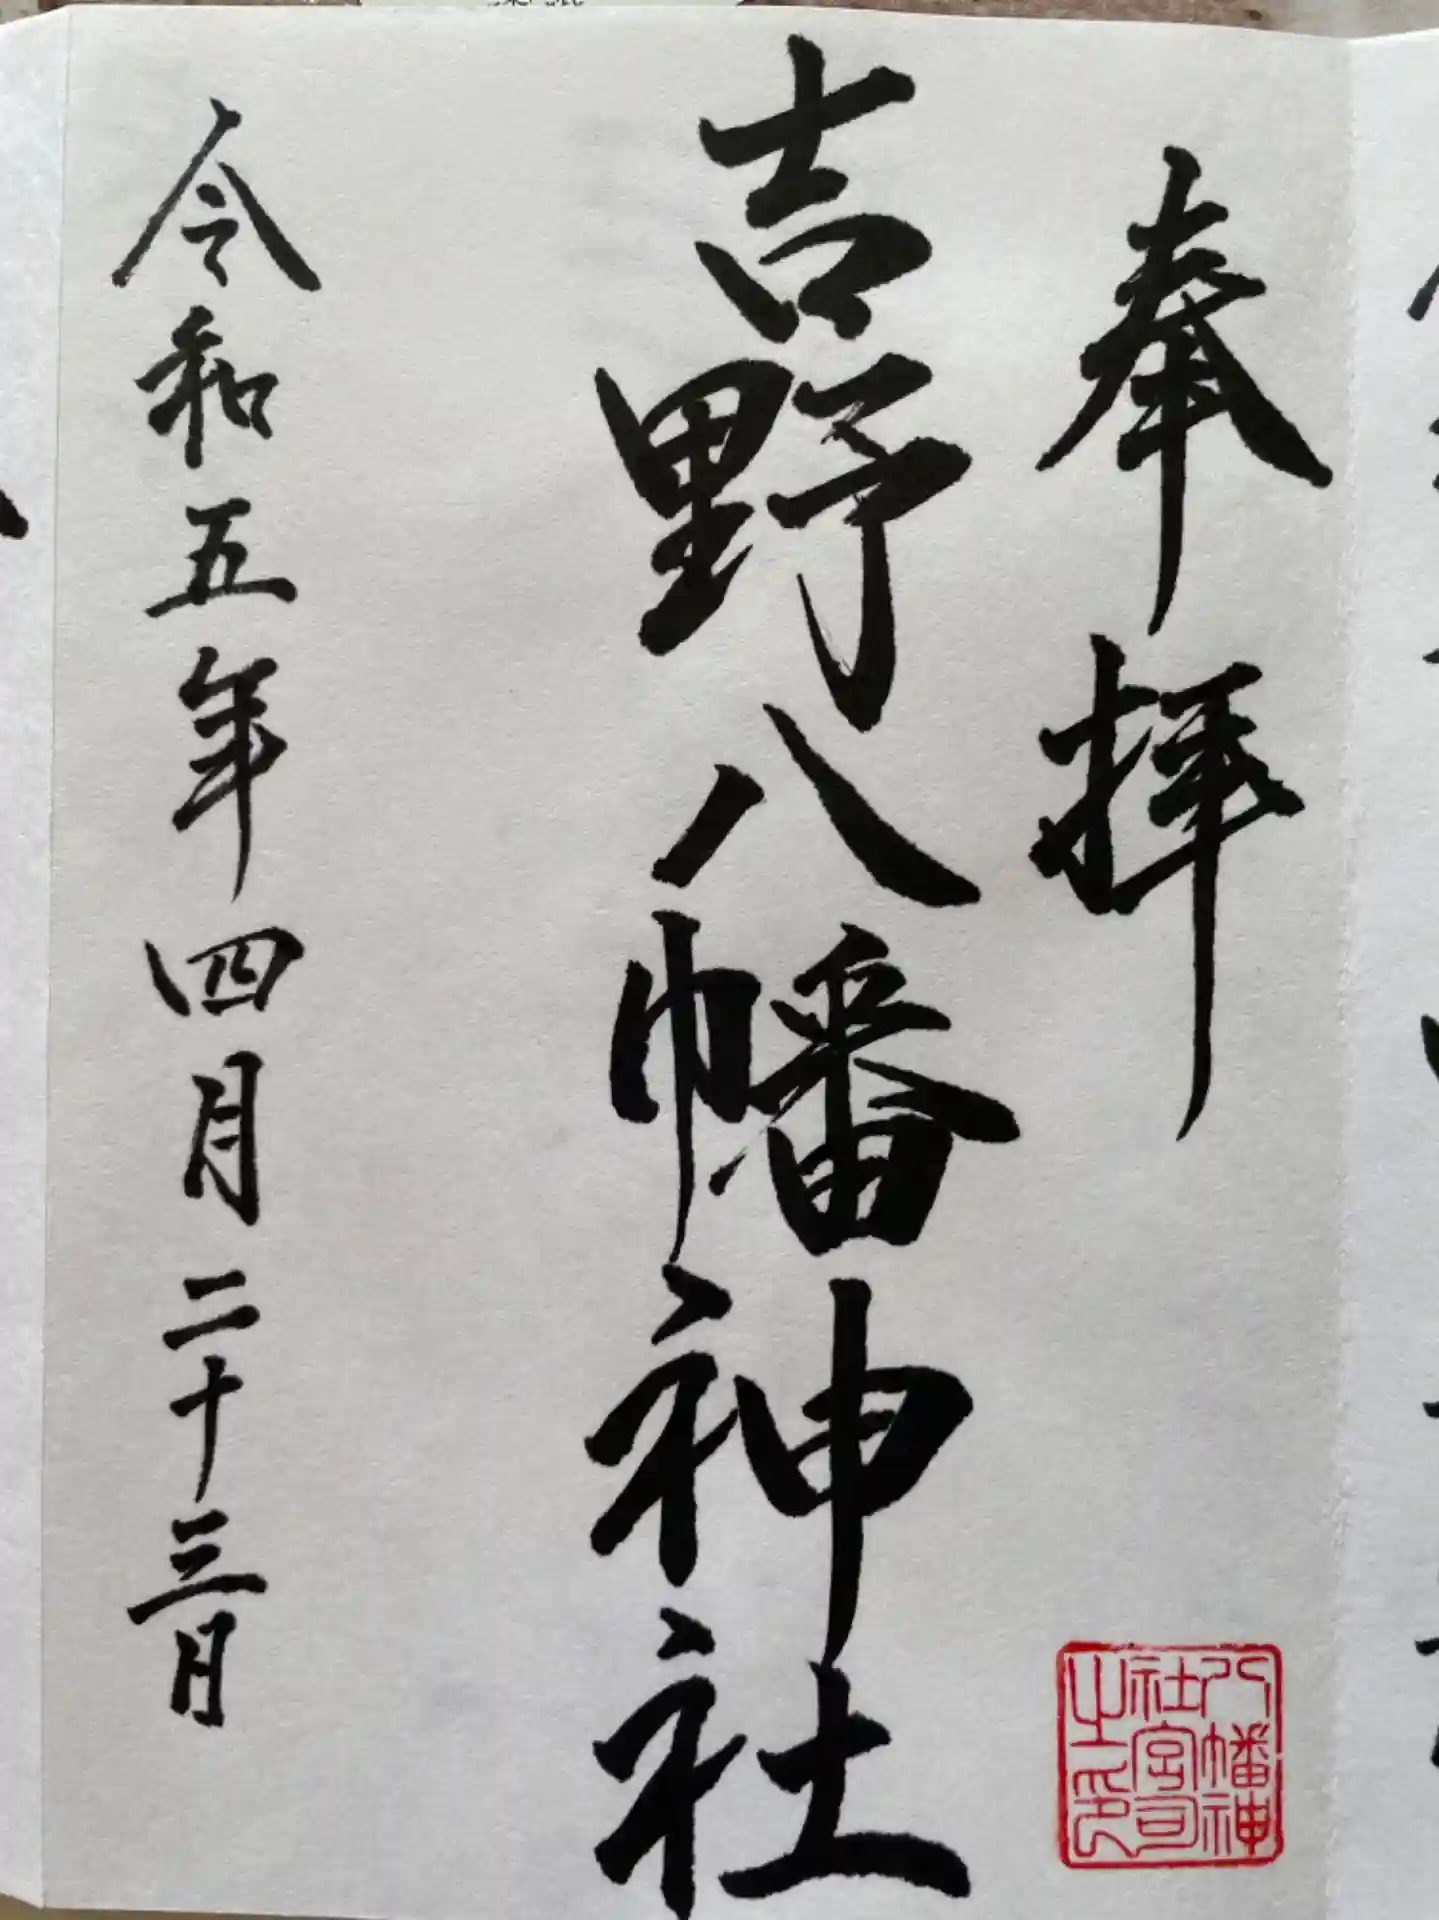 奉拝
吉野八幡神社
八幡神
社宮司
之印
令和五年四月二十三日